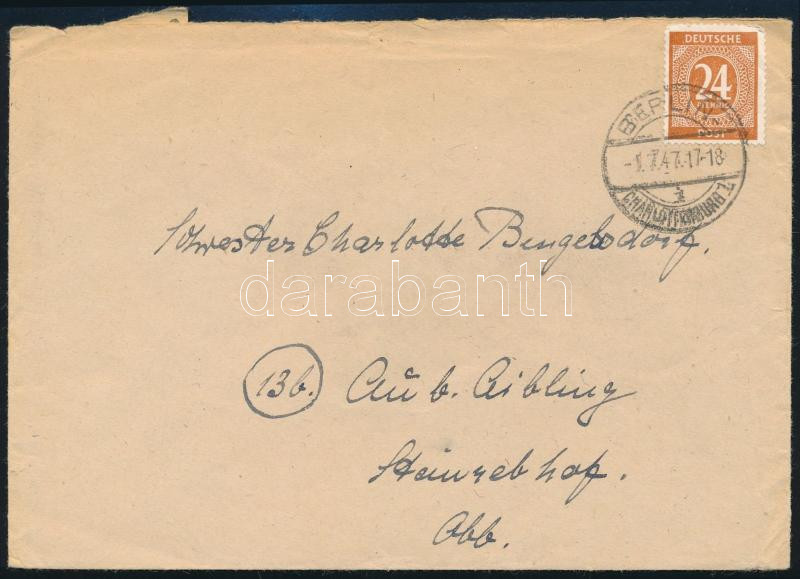 DEUTSCHE
24
PFENNIG
POST
BERLIN
-1.7.47.17-18
CHARLOTTENBURG
Schwester Charlotte Bengelsdorf.
darabanth
13b. Au b. Aibling
Obb.